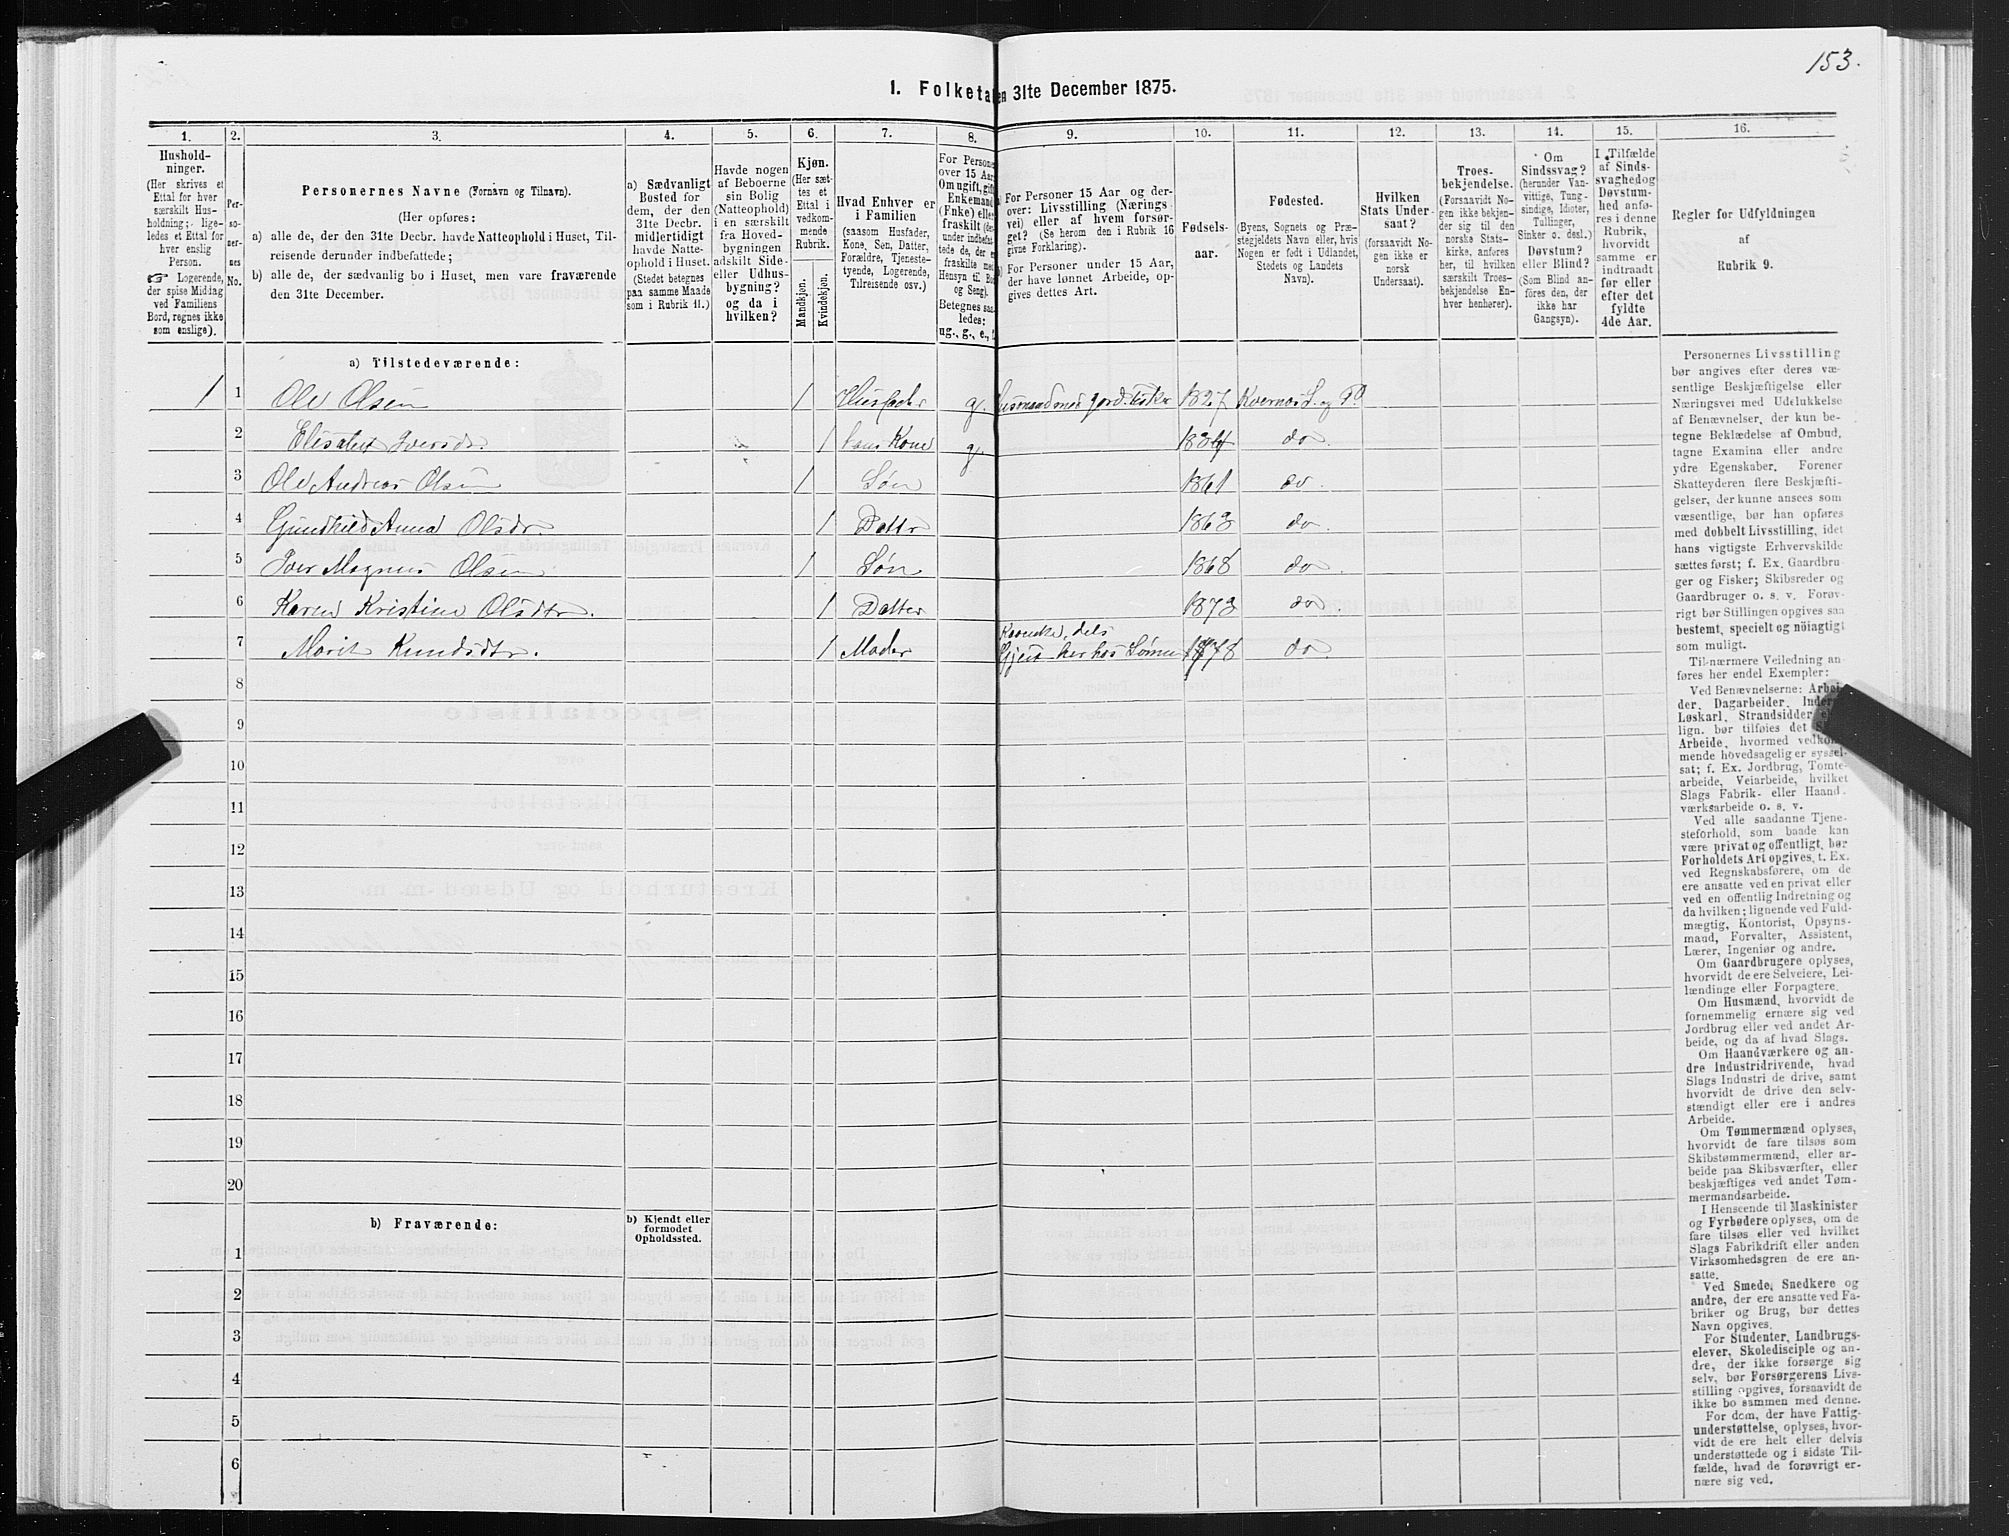 153.
1. Folketa en 31te December 1875.
1. 2. 3. 4. 5. 6. 7. 8. 9. 10. 11. 12. 13. 14. 15. 16.
Hushold-
ninger.
(Her skrives et
Ettal for hver
særskilt Hus-
holdning; lige-
ledes et Ettal for
hver enslig
Person.
Logerende,
der spise Middag
ved Familiens
Bord, regnes ikke
som enslige).
Per-
so-
ner-
nes
No.
Personernes Navne (Fornavn og Tilnavn).
(Her opføres:
a) alle de, der den 31te Decbr. havde Natteophold i Huset, Til-
reisende derunder indbefattede;
b) alle de, der sædvanlig bo i Huset, men vare fraværende
den 31te December.
a) Sædvanligt
Bosted for
dem, der den
31te Decbr.
midlertidigt
havde Natte-
ophold i Huset.
(Stedet betegnes
paa samme Maade
som i Rubrik 11.)
Havde nogen
af Beboerne
sin Bolig
(Natteophold)
i en særskilt
fra Hoved-
bygningen
adskilt Side-
eller Udhus-
bygning?
og da i
hvilken?
Kjøn.
(Her sæt-
tes et
Ettal i
vedkom-
mende
Rubrik.
Mandkjøn.
Kvindekjøn.
Hvad Enhver er
i Familien
(saasom Husfader,
Kone, Søn, Datter,
Forældre, Tjeneste-
tyende, Logerende,
Tilreisende osv.)
For Persone
over 15 Aar
Om ugift, gift
Enkemand
(Enke) elle
fraskilt (de
under indbefat
tede de, der e
fraskilte me
Hensyn til Bo
og Seng).
Betegnes saa
ledes:
ug., g., e., f.
For Personer 15 Aar og der-
over: Livsstilling (Nærings
vei) eller af hvem forsør-
get? (Se herom den i Rubrik 16
givne Forklaring).
For Personer under 15 Aar,
der have lønnet Arbeide, op-
gives dettes Art.
Fødsels-
aar.
Fødested.
(Byens, Sognets og Præ-
stegjeldets Navn eller, hvis
Nogen er født i Udlandet,
Stedets og Landets
Navn).
Hvilken
Stats Under-
saat?
(forsaavidt No-
gen ikke er
norsk
Undersaat).
Troes-
bekjendelse.
(Forsaavidt No-
gen ikke bekjen-
der sig til den
norske Stats-
kirke, anføres
her, til hvilken
særskilt Troes-
bekjendelse En-
hver henhører).
Om
Sindssvag?
(herunder Van-
vittige, Tung-
sindige, Idioter,
Tullinger,
Sinker o. desl.)
Døvstum?
eller Blind?
(Som Blind an-
føres den, der
ikke har
Gangsyn).
I Tilfælde
af Sinds-
svaghed og
Døvstum-
hed anfø-
res i denne
Rubrik,
hvorvidt
samme er
indtraadt
før eller
efter det
fyldte
4de Aar.
Regler for Udfyldningen
af
Rubrik 9.
a) Tilstedeværende:
1 1 Ole Olsen 1 Husfader g. 1827 Kvernes S. og P.
2 Elisabet Iversdr. 1 hans Kone g. 1834 do.
3 Ole Andreas Olsen 1 Søn 1861 do.
4 Gundhild Anna Olsdr. 1 Datter 1863 do.
5 Iver Magnus Olsen 1 Søn 1868 do.
6 Karen Kristine Olsdtr. 1 Datter 1873 do.
7 Marit Knudsdtr. 1 Moder do.
8
9
10
11
12
13
14
15
16
17
18
19
20
b) Fraværende:
b) Kjendt eller
formodet
Opholdssted.
1
2
3
4
5
6
Personernes Livsstilling
bør angives efter deres væ-
sentlige Beskjæftigelse eller
Næringsvei med Udelukkelse
af Benævnelser, der kun be-
tegne Beklædelse af Ombud,
tagne Examina eller andre
ydre Egenskaber. Forener
Skatteyderen flere Beskjæfti-
gelser, der kunne ansees som
væsentlige, bør han opføres
med dobbelt Livsstilling, idet
hans vigtigste Erhvervskilde
sættes først; f. Ex. Gaardbru-
ger og Fisker; Skibsreder og
Gaardbruger o. s. v. Forøv-
rigt bør Stillingen opgives saa
bestemt, specielt og nöiagtigt
som muligt.
Til nærmere Veiledning an-
føres her endel Exempler:
Ved Benævnelserne: Arbei-
der, Dagarbeider, Inder
Løskarl, Strandsidder
lign. bør tilføies det
Arbeide, hvormed vedkom
mende hovedsagelig er syssel-
sat; f. Ex. Jordbrug, Tomte-
arbeide, Veiarbeide, hvilket
Slags Fabrik- eller Haand-
værksarbeide o. s. v.
Ved alle saadanne Tjene-
steforhold, som baade kan
være privat og offentligt, bør
Forholdets Art opgives, t. Ex.
ved Regnskabsførere, om de
ere ansatte ved en privat eller
ved en offentlig Indretning og
da hvilken; lignende ved Fuld-
mægtig, Kontorist, Opsyns-
mand, Forvalter, Assistent,
Lærer, Ingeniør og andre.
Om Gaardbrugere oplyses,
hvorvidt de ere Selveiere, Lei-
lændinge eller Forpagtere.
Om Husmænd, hvorvidt de
fornemmelig ernære sig ved
Jordbrug eller ved andet Ar-
beide, og da af hvad Slags.
Om Haandværkere og an-
dre Industridrivende, hvad
Slags Industri de drive, samt
hvorvidt de drive den selv-
stændigt eller ere i andres
Arbeide.
Om Tømmermænd oplyses,
hvorvidt de fare tilsøs som
Skibstømmermænd, eller ar-
beide paa Skibsværfter, eller
beskjæftiges ved andet Tøm-
mermandsarbeide.
I Henseende til Maskinister
og Fyrbødere oplyses, om de
fare tilsøs eller ved hvilket
Slags Fabrikdrift eller anden
Virksomhedsgren de ere an-
satte.
Ved Smede, Snedkere og
andre, der ere ansatte ved Fa-
briker og Brug, bør dettes
Navn opgives.
For Studenter, Landbrugs-
elever, Skoledisciple og an-
dre, der ikke forsørge sig
selv, bør Forsørgerens Livs-
stilling opgives, forsaavidt de
ikke bo sammen med denne.
For dem, der have Fattig-
understøttelse, oplyses, hvor-
vidt de ere helt eller delvis
understøttede og i sidste Til-
fælde, hvad de forøvrigt er-
nære sig ved.